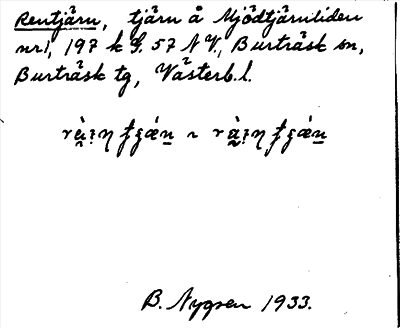 Rentjärn, tjärn å Mjödtjärnliden
nr 1, 197 k G. 57 N V., Burträsk sn,
Burträsk tg, Västerb. l.
B. Nygren 1933.